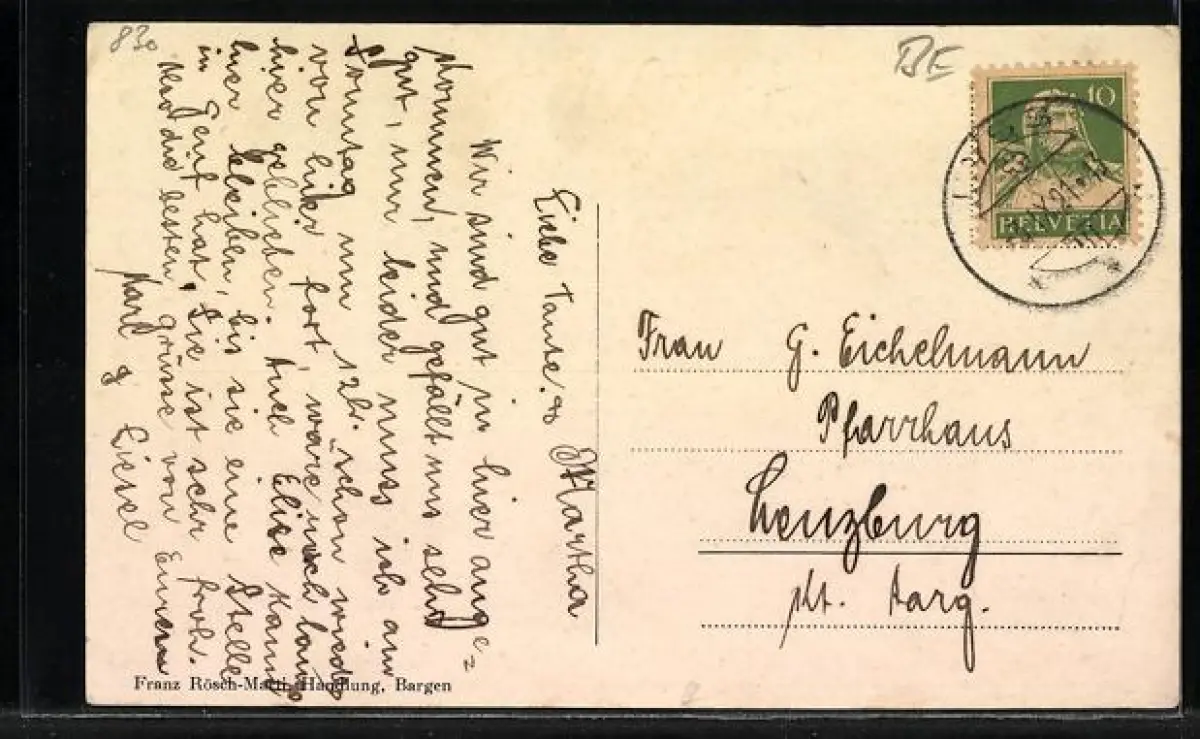 830
BE
10
HELVETIA
Liebe Tante. &
Martha
Wir sind gut in hier ange=
kommen, und gefällt uns sehr
gut, nur leider muss ich am
Sonntag um 12h. schon wied
von hier fort, wäre noch lang
hier geblieben. Auch Elise kann
hier bleiben, bis sie eine Stelle
in Genf hat. Sie ist sehr froh.
Also die besten grüsse von Euren
Karl & Liesel
Frau G. Eichelmann
Pfarrhaus
Lenzburg
Kt. Aarg.
Franz Rösch-Marti, Handlung, Bargen